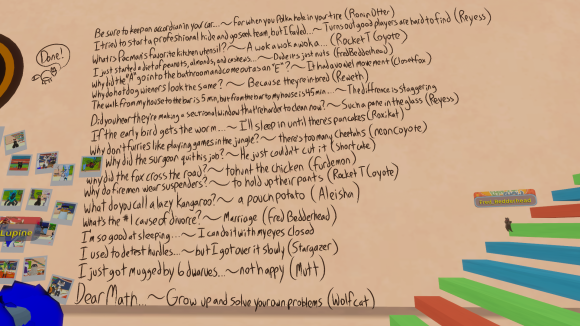 Done!
Be sure to keep an accordian in your car...~ For when you Polka hole in your tire (RoninOtter)
I tried to start a professional hide and go seek team, but I failed...~ Turns out good players are hard to find (Reyess)
What is Pacman's favorite kitchen utensil? ~ A wok a wok a wok a... (RocketTCoyote)
I just started a diet of peanuts, almonds, and cashews...~ Dude it's just nuts (fredBedderhead)
Why did the "A" go into the bathroom and come out as an "E"? ~ It had a vowel movement (Clonofox)
Why do hot dog wieners look the same? ~ Because they're in bred (Reweth)
The walk from my house to the bar is 5 min, but from the bar to my house is 45 min...~ The difference is staggering
Did you hear they're making a sectional window that's harder to clean now? ~ Such a pane in the glass (Reyess)
If the early bird gets the worm...~ I'll sleep in until there's pancakes (Roxikat)
Why don't furries like playing games in the jungle? ~ there's too many Cheetahs (neoncoyote)
Why did the surgeon quit his job? ~ He just couldn't cut it (Shortcake)
Why did the fox cross the road? ~ to hunt the chicken (furdemon)
Why do firemen wear suspenders? ~ to hold up their pants (RocketTCoyote)
What do you call a lacy kangaroo? ~ a pouch potato (Aleisha)
What's the #1 cause of divorce? ~ Marriage (fredBedderhead)
I'm so good at sleeping...~ I can do it with my eyes closed
I used to detest hurdles...~ but I got over it slowly (Stargazer)
I just got mugged by 6 dwarves...~ not happy (Mutt)
Dear Math...~ Grow up and solve your own problems (Wolfcat)
Lupine